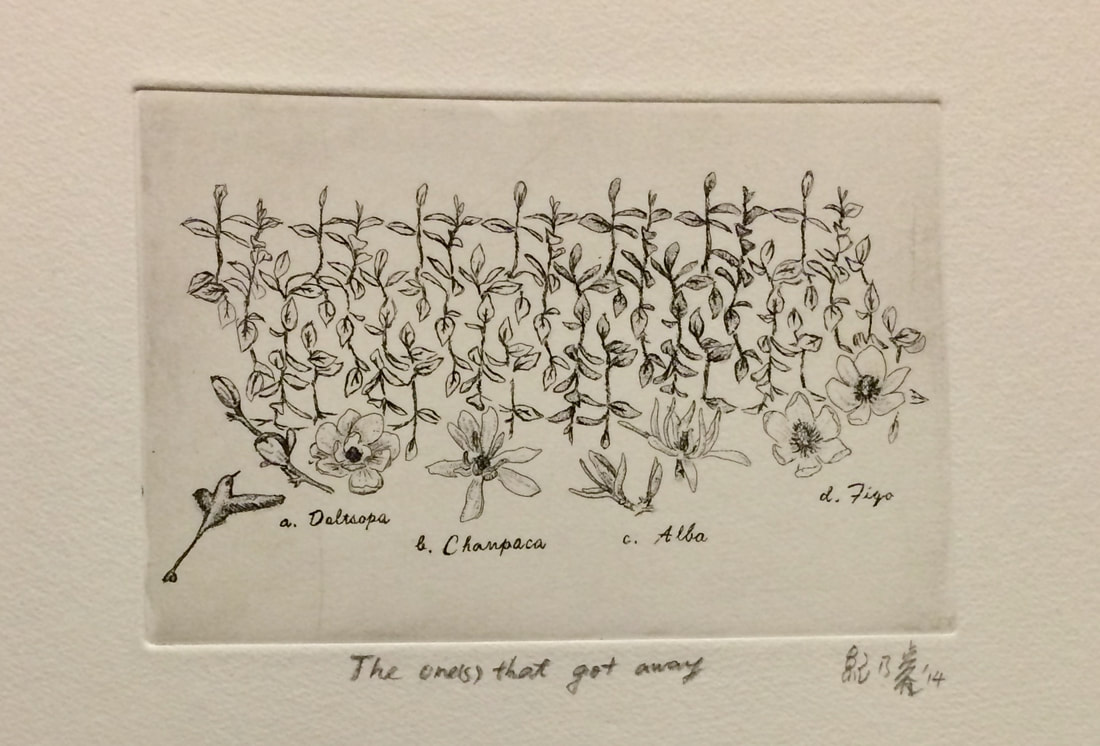 a. Doltsopa
b. Champaca
c. Alba
d. Figo
The one(s) that got away
紀乃 '14